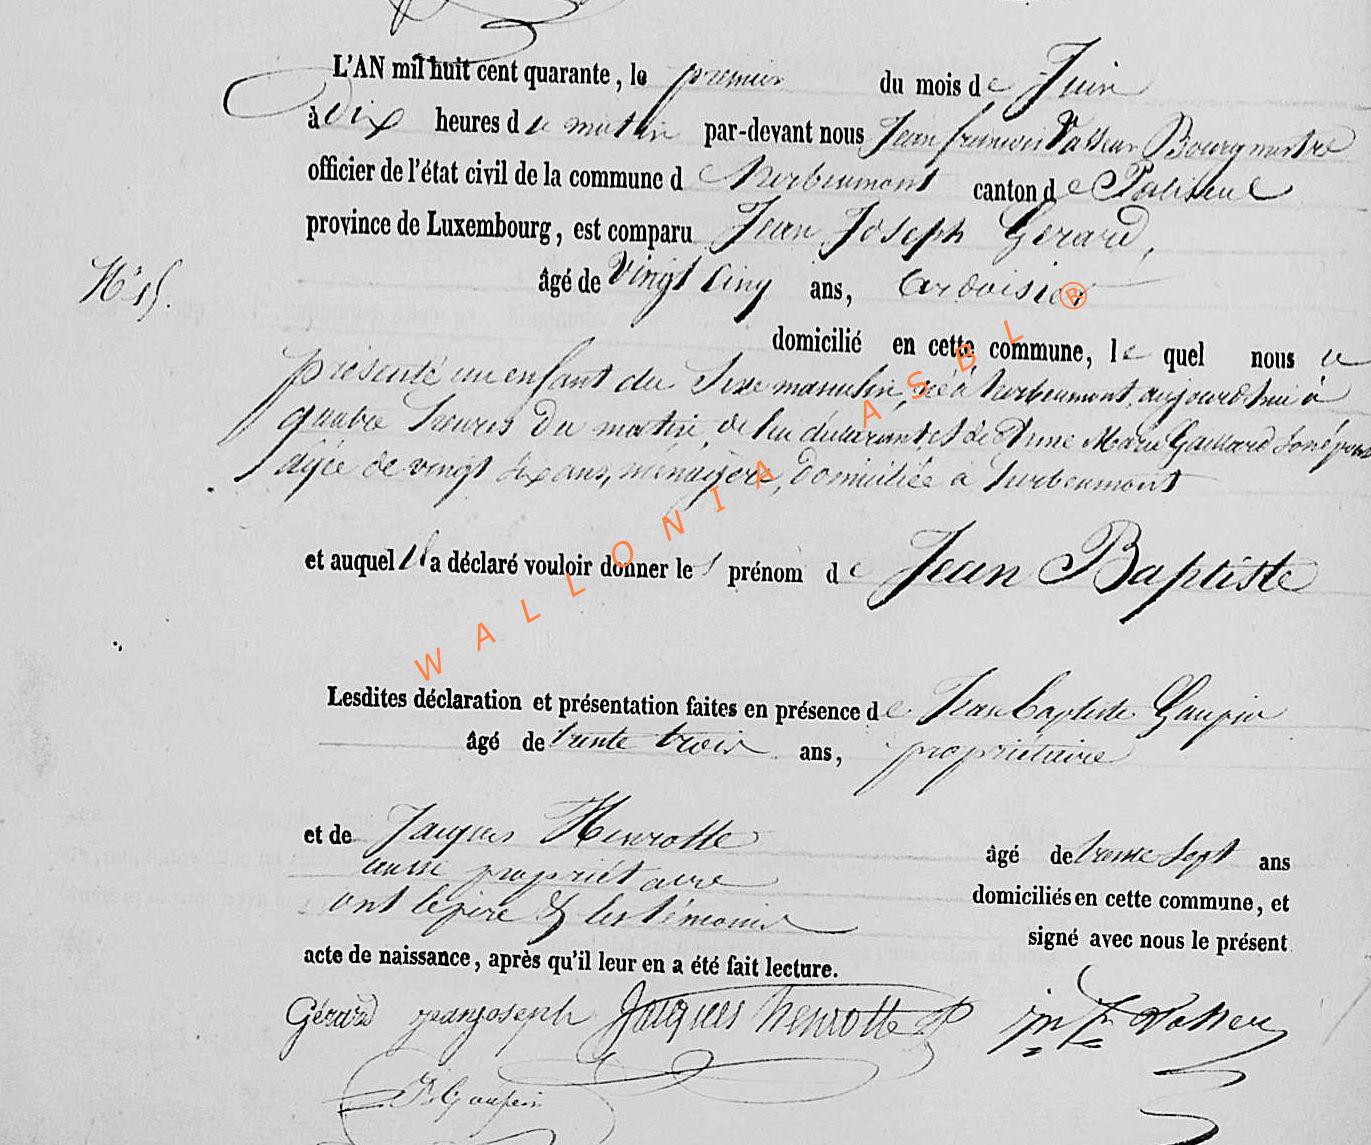 L'AN mil huit cent quarante, le premier du mois de Juin
à dix heures du matin par-devant nous Jean françois Vasseur Bourgmestre
officier de l'état civil de la commune d'herbeumont canton de Paliseul
province de Luxembourg, est comparu Jean Joseph Gerard,
âgé de Vingt Cinq ans, ardoisier
N° 15.
domicilié en cette commune, le quel nous a
présenté un enfant du Sexe masculin, né à herbeumont, aujourd'hui à
quatre heures du matin, de lui déclarant, et de Anne Marie Gaillard son épouse
âgée de vingt six ans, ménagère, domiciliée à herbeumont
et auquel il a déclaré vouloir donner les prénom de Jean Baptiste
Lesdites déclaration et présentation faites en présence de Jean Baptiste Gaupin
âgé de trente trois ans, propriétaire
et de Jacques Henrotte âgé de trente sept ans
aussi propriétaire domiciliés en cette commune, et
ont le père & les témoins signé avec nous le présent
acte de naissance, après qu'il leur en a été fait lecture.
Gérard jeanjoseph Jacques henrotte
Gaupin
WALLONIA ASBL ®